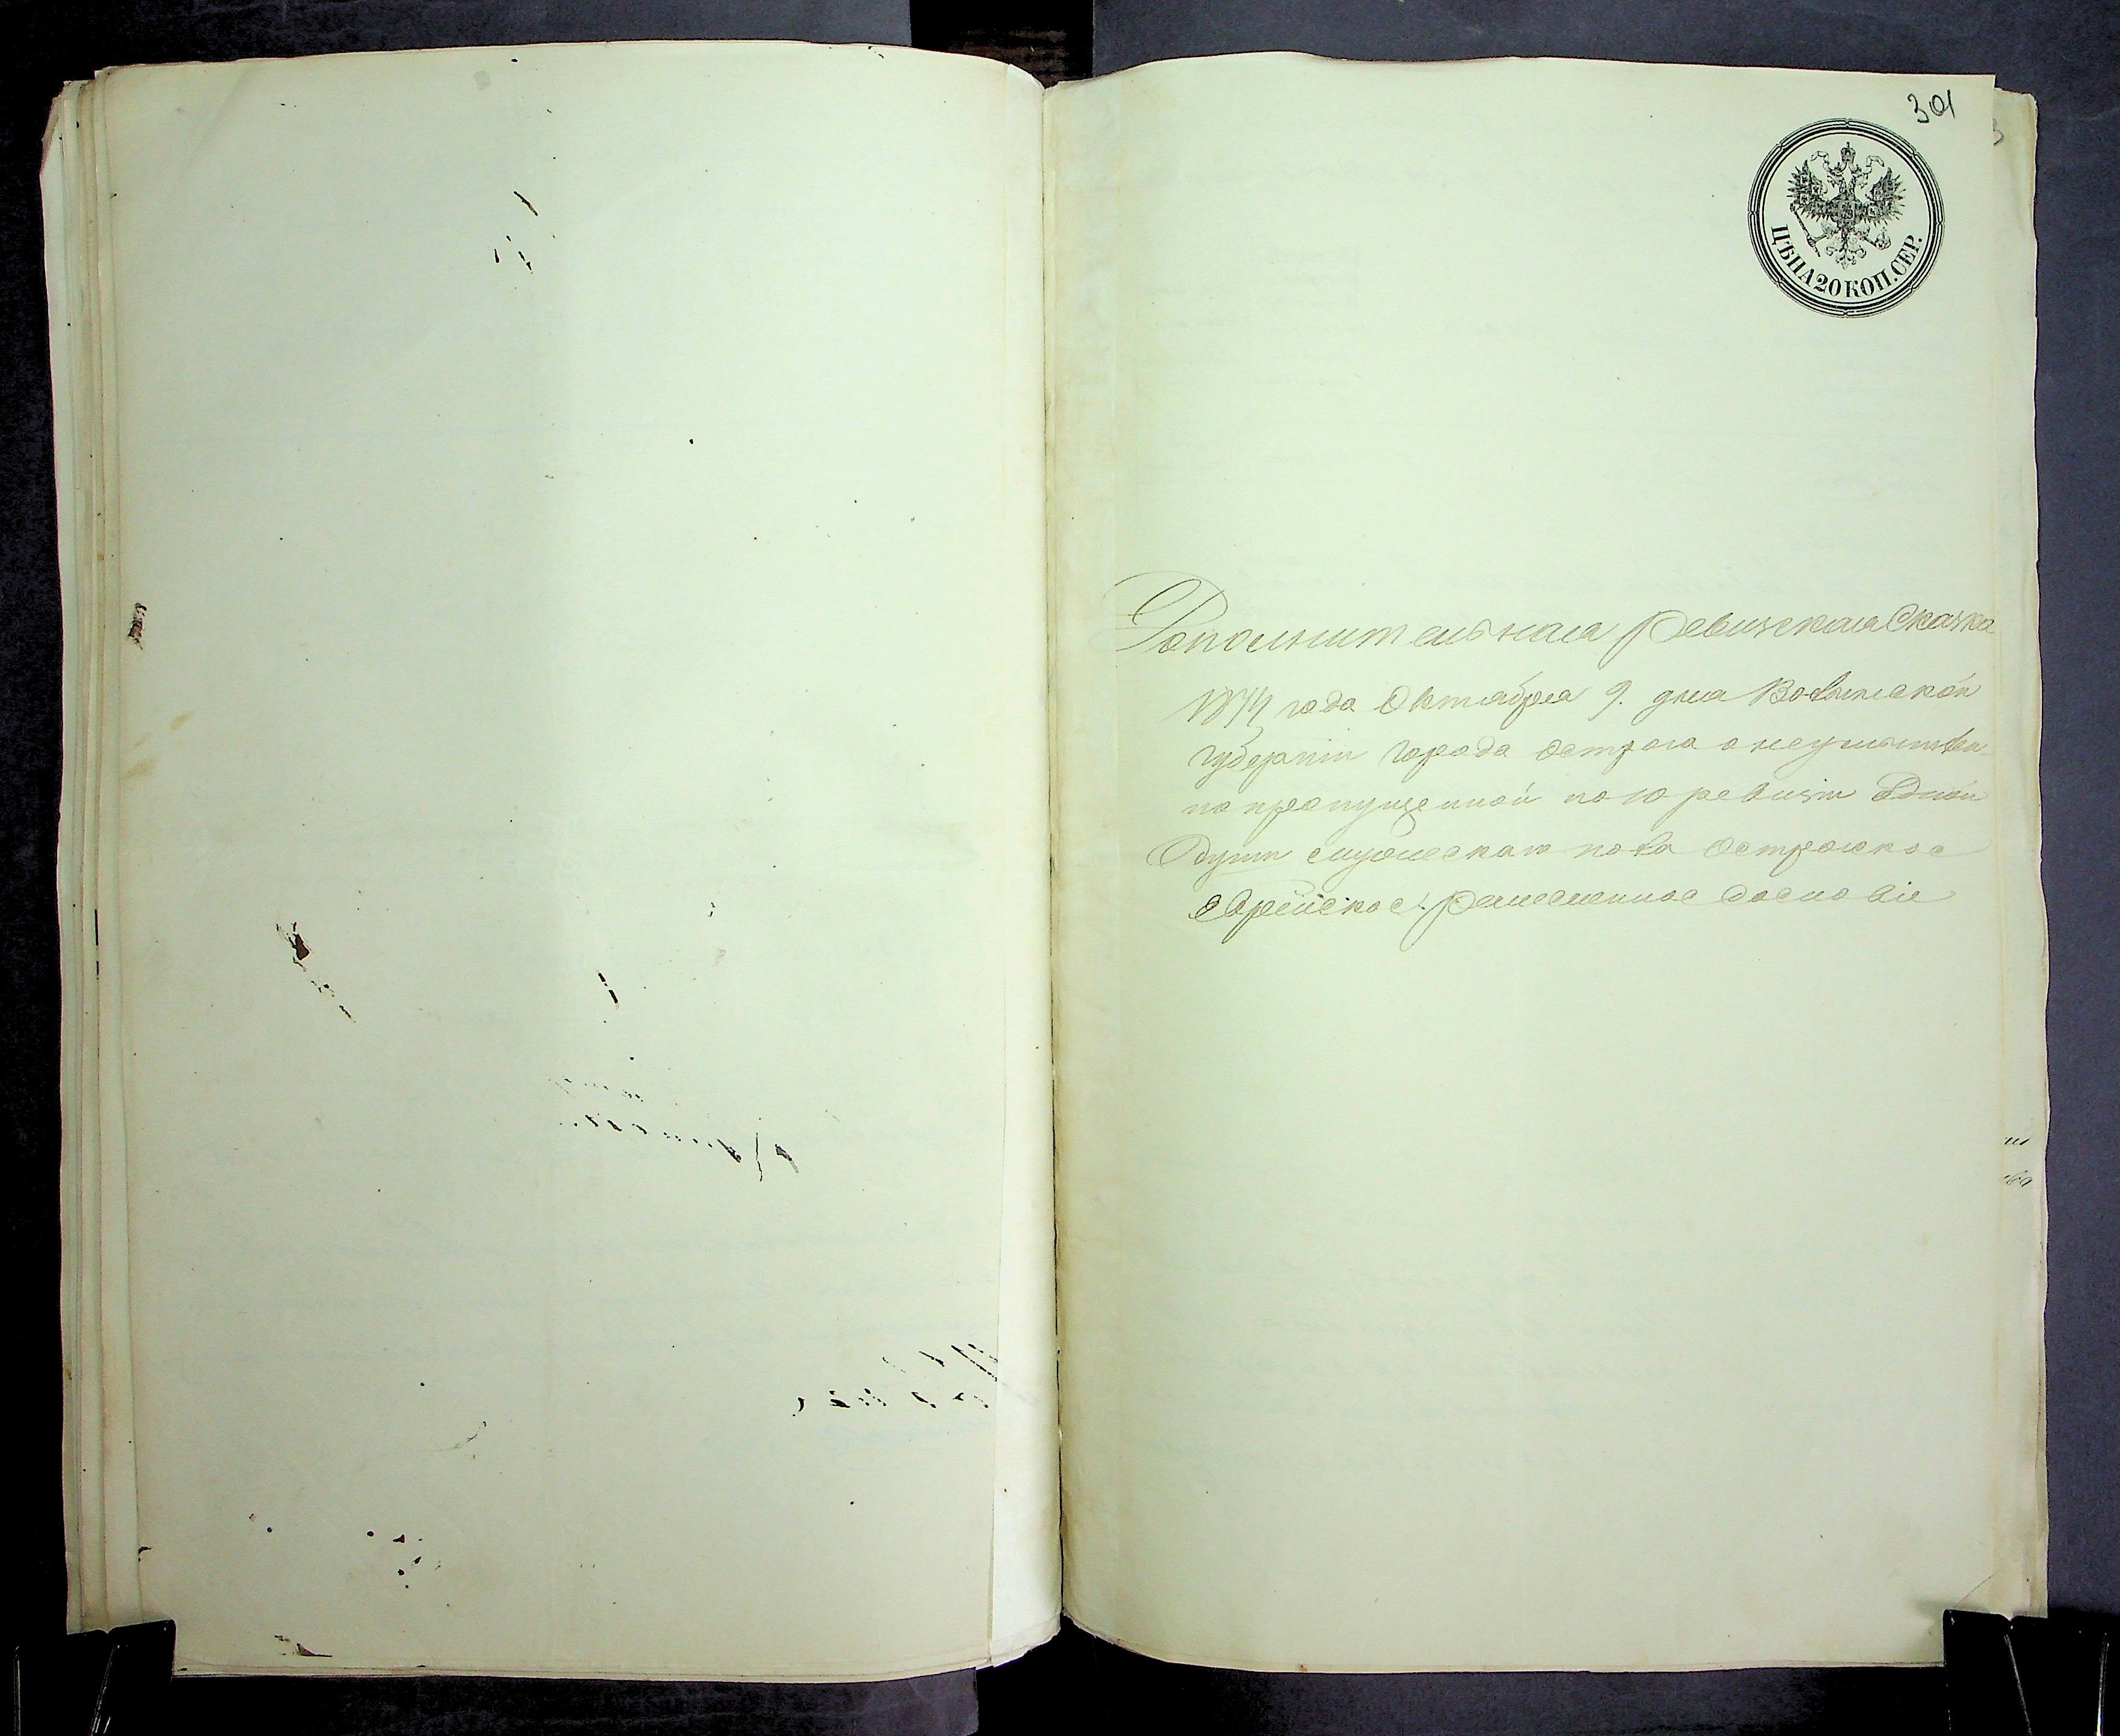 301
ЦѢНА 20 КОП. СЕР.
Дополнительная Ревизская Сказка
1874 года Октября 9. дня Волынской
губерніи города Острога о неумышлен
но пропущенной по 10 ревизіи Одной
Души мужескаго пола Острожское
Еврейское Ремесленное Сословіе